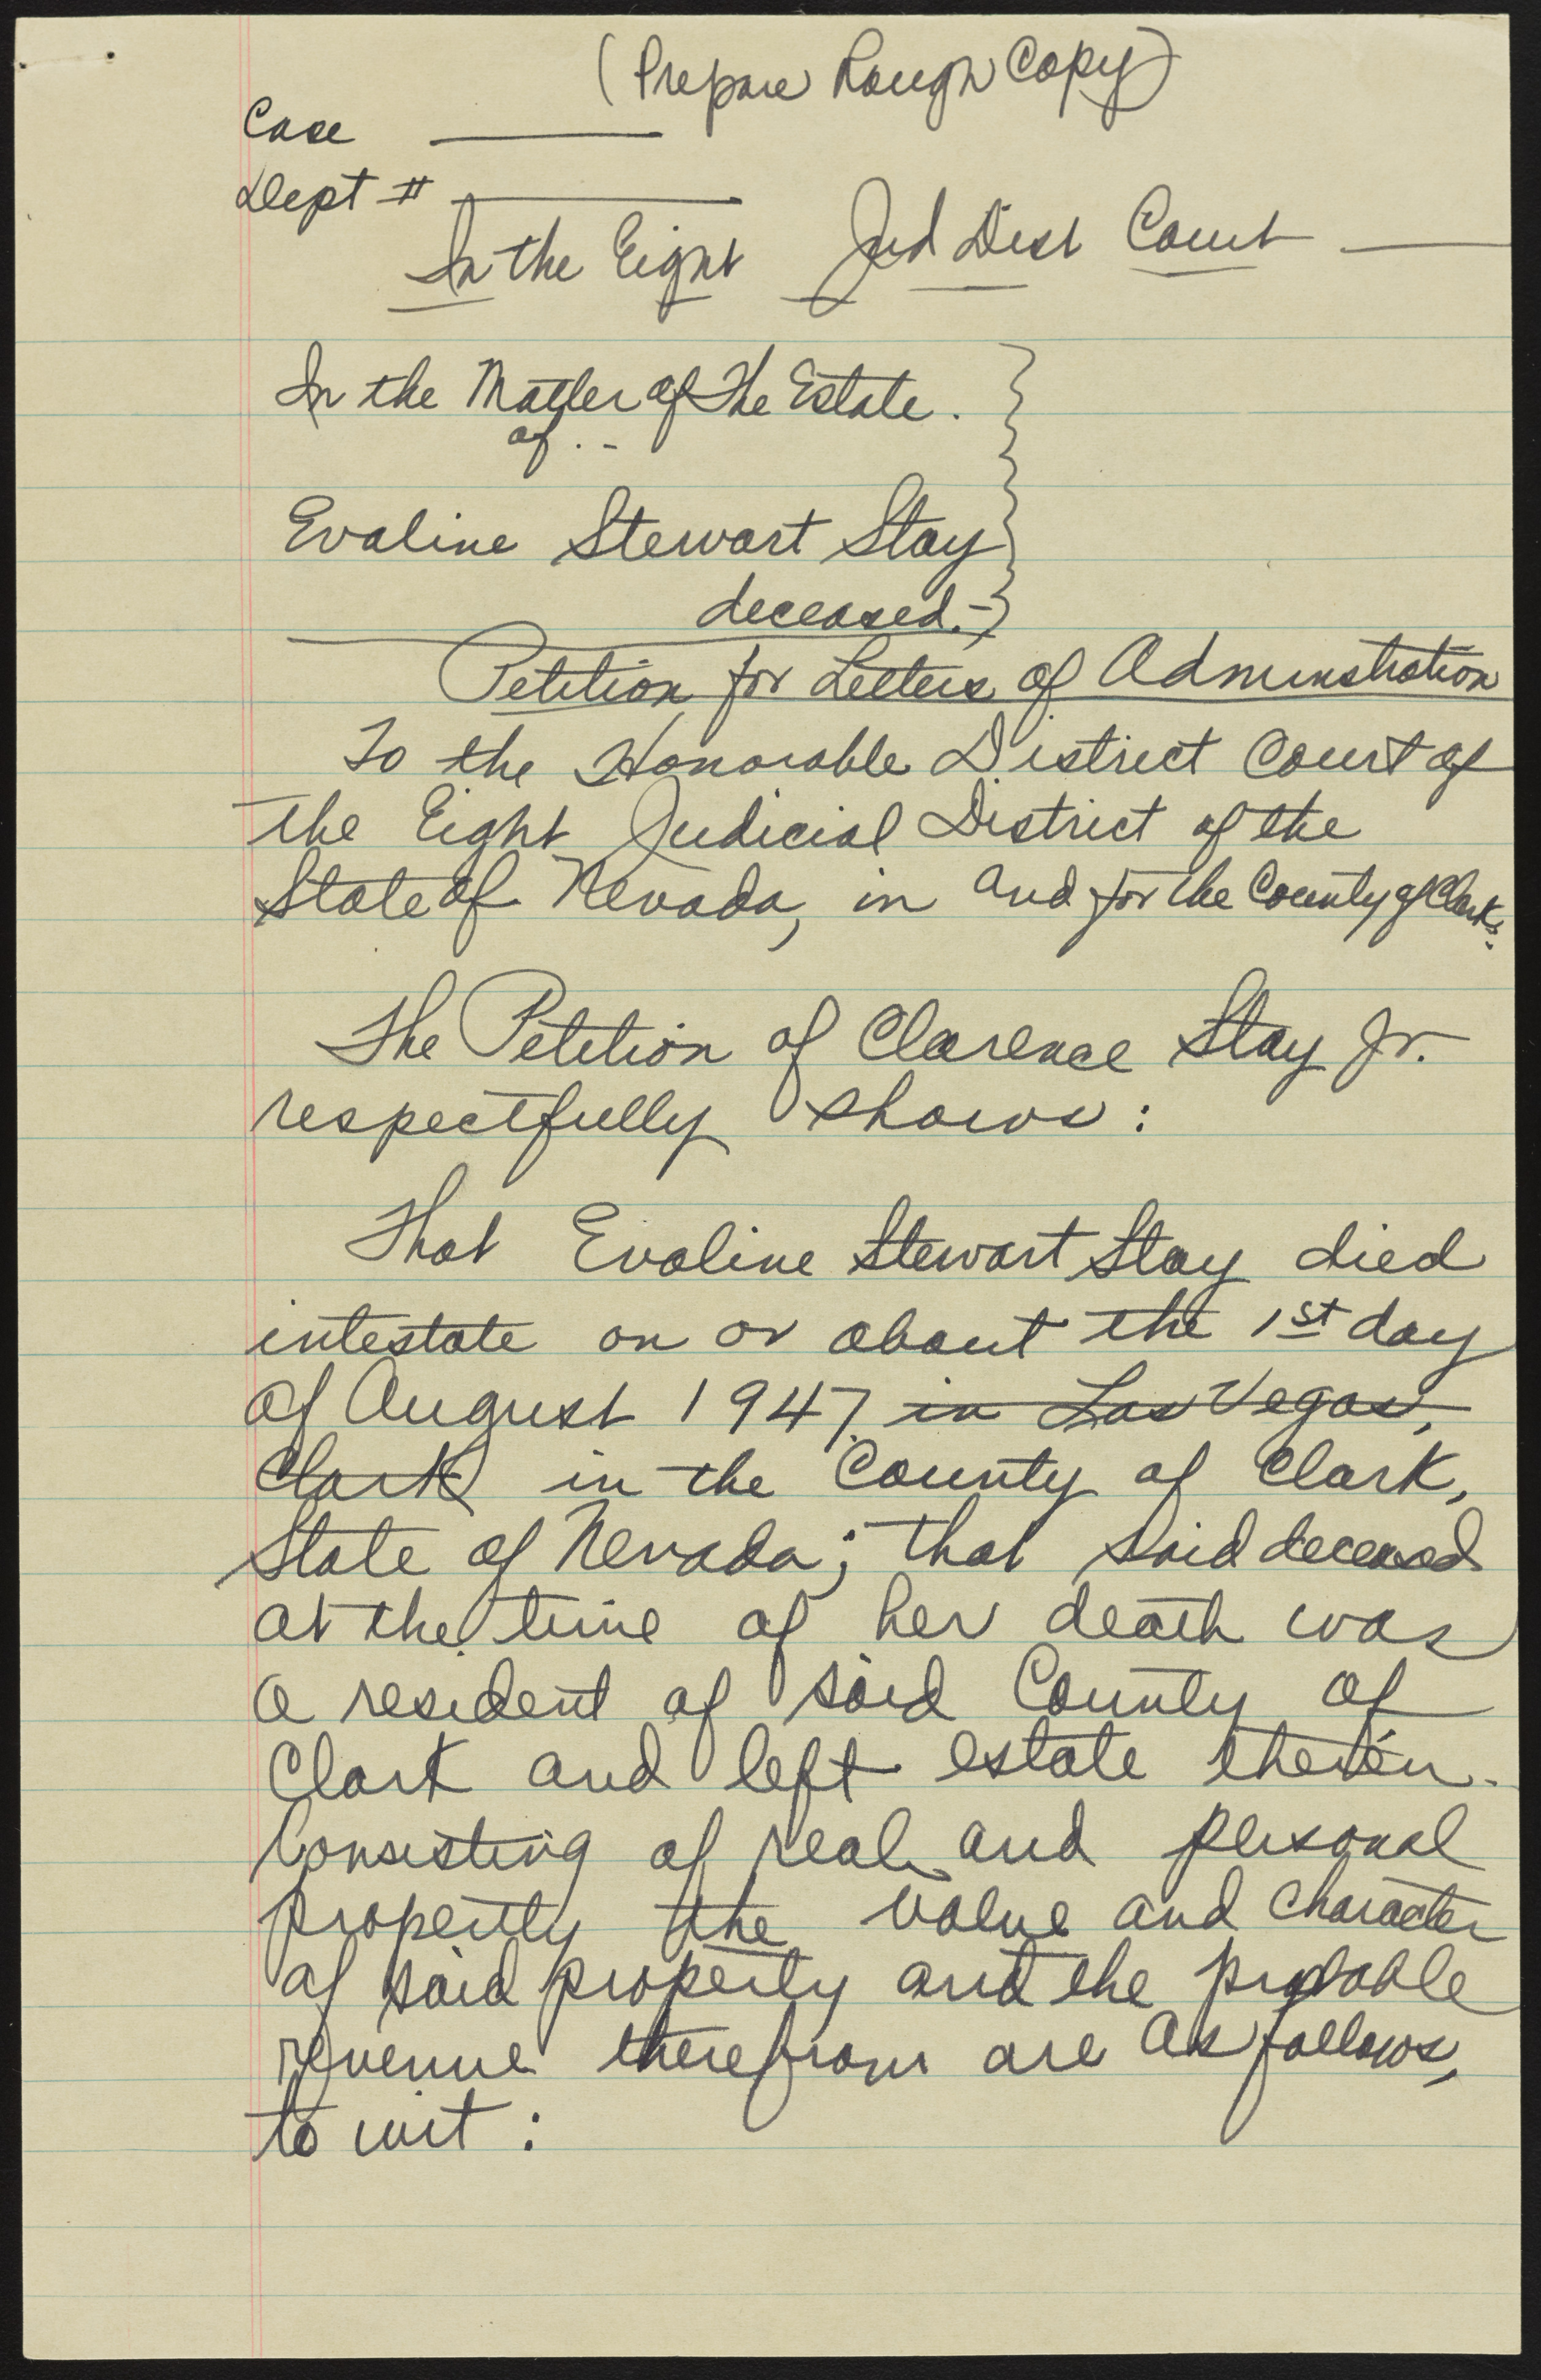 (Prepare Rough Copy)
Case ______
Dept # ______
In the Eight Jud Dist Court ___
In the Matter of The Estate.
of . . -
Evaline Stewart Stay
deceased.-
Petition for Letters of Adminstration
To the Honorable District Court of
the Eight Judicial District of the
State of Nevada, in and for the County of Clark:
The Petition of Clarence Stay Jr.
respectfully shows:
That Evaline Stewart Stay died
intestate on or about the 1st day
of August 1947 in Las Vegas,
Clark in the County of Clark,
State of Nevada; that said deceased
at the time of her death was
a resident of said County of
Clark and left estate therein.
Consisting of real and personal
property the value and character
of said property and the probable
revenue therefrom are as follows,
to wit :